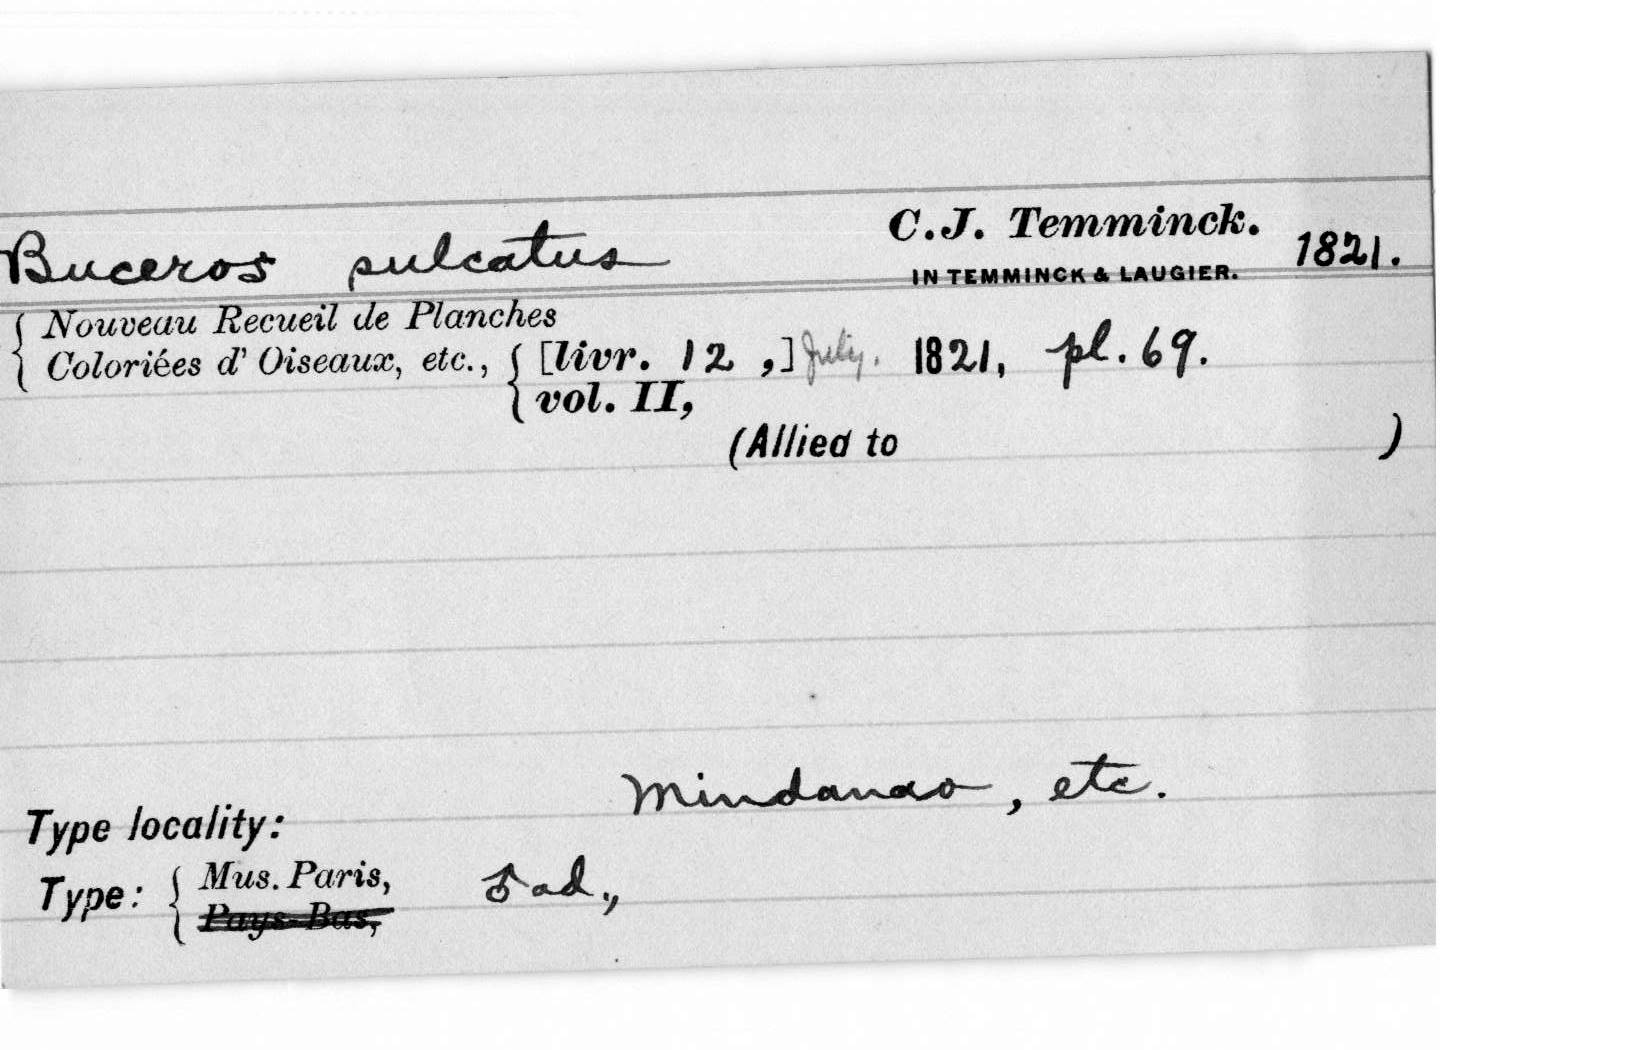 C.J. Temminck.
Buceros sulcatus 1821.
IN TEMMINCK & LAUGIER.
{ Nouveau Recueil de Planches
Coloriées d' Oiseaux, etc., { [livr. 12 ,] July. 1821, pl. 69.
vol. II,
(Allied to )
Mindanao, etc.
Type locality:
Type: { Mus. Paris, ♂ ad.,
Pays-Bas,